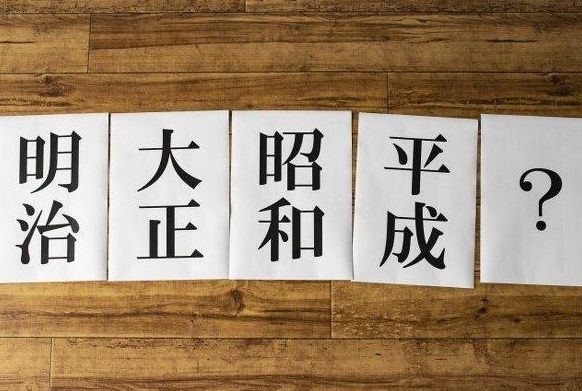 明治
大正
昭和
平成
?